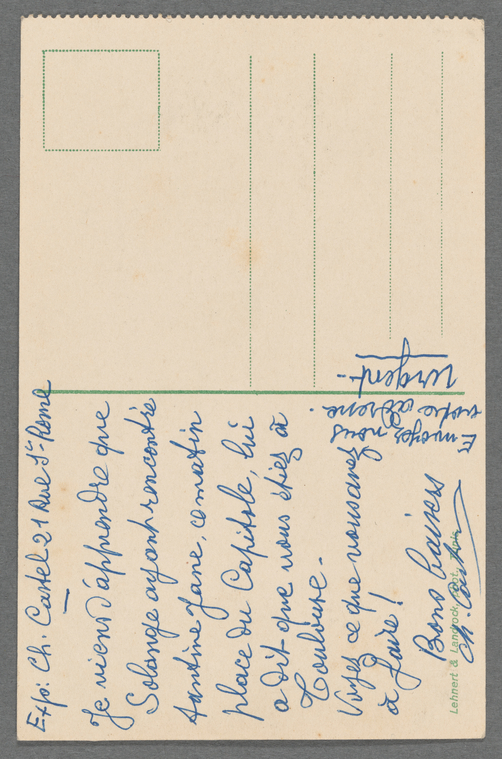 Exp: Ch. Castel 21 Rue Ste Rome
Je viens d'apprendre que
Solange ayant rencontré
tantine Janie, ce matin
place du Capitole, lui
a dit que vous étiez à
Toulouse.
Voyez ce que vous avez
à faire!
Bons baisers
Ch. Castel
Envoyez nous
votre adresse.
urgent.
Lehnert & Landrock,